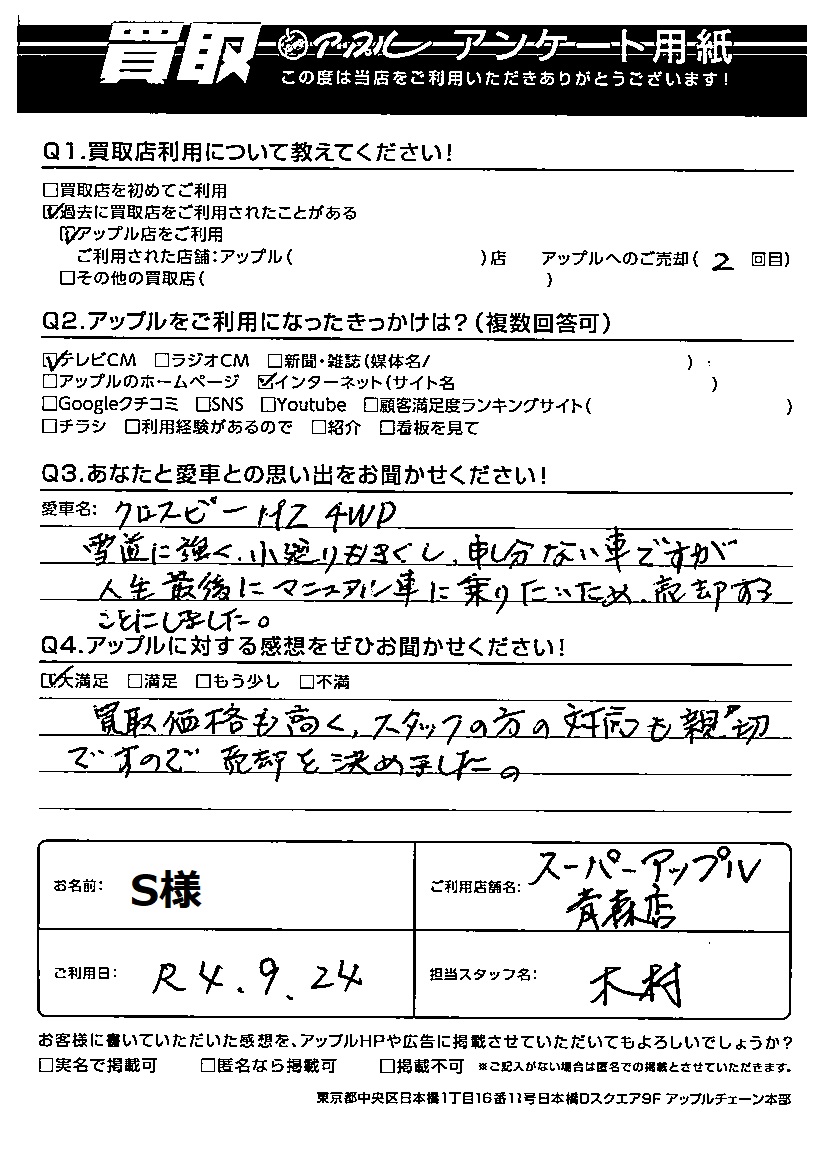 買取 アップル アンケート用紙
この度は当店をご利用いただきありがとうございます!
Q1.買取店利用について教えてください!
□買取店を初めてご利用
☑過去に買取店をご利用されたことがある
☑アップル店をご利用
ご利用された店舗:アップル( )店 アップルへのご売却( 2 回目)
□その他の買取店( )
Q2.アップルをご利用になったきっかけは?(複数回答可)
☑テレビCM □ラジオCM □新聞・雑誌(媒体名/ )
□アップルのホームページ ☑インターネット(サイト名 )
□Googleクチコミ □SNS □Youtube □顧客満足度ランキングサイト( )
□チラシ □利用経験があるので □紹介 □看板を見て
Q3.あなたと愛車との思い出をお聞かせください!
愛車名: クロスビー HZ 4WD
雪道に強く、小廻りもきくし、申し分ない車ですが
人生最後にマニュアル車に乗りたいため、売却する
ことにしました。
Q4.アップルに対する感想をぜひお聞かせください!
☑大満足 □満足 □もう少し □不満
買取価格も高く、スタッフの方の対応も親切
ですので売却を決めました。
お名前: S様 ご利用店舗名: スーパーアップル
青森店
ご利用日: R4.9.24 担当スタッフ名: 木村
お客様に書いていただいた感想を、アップルHPや広告に掲載させていただいてもよろしいでしょうか?
□実名で掲載可 □匿名なら掲載可 □掲載不可 ※ご記入がない場合は匿名での掲載とさせていただきます。
東京都中央区日本橋1丁目16番11号日本橋Dスクエア9F アップルチェーン本部